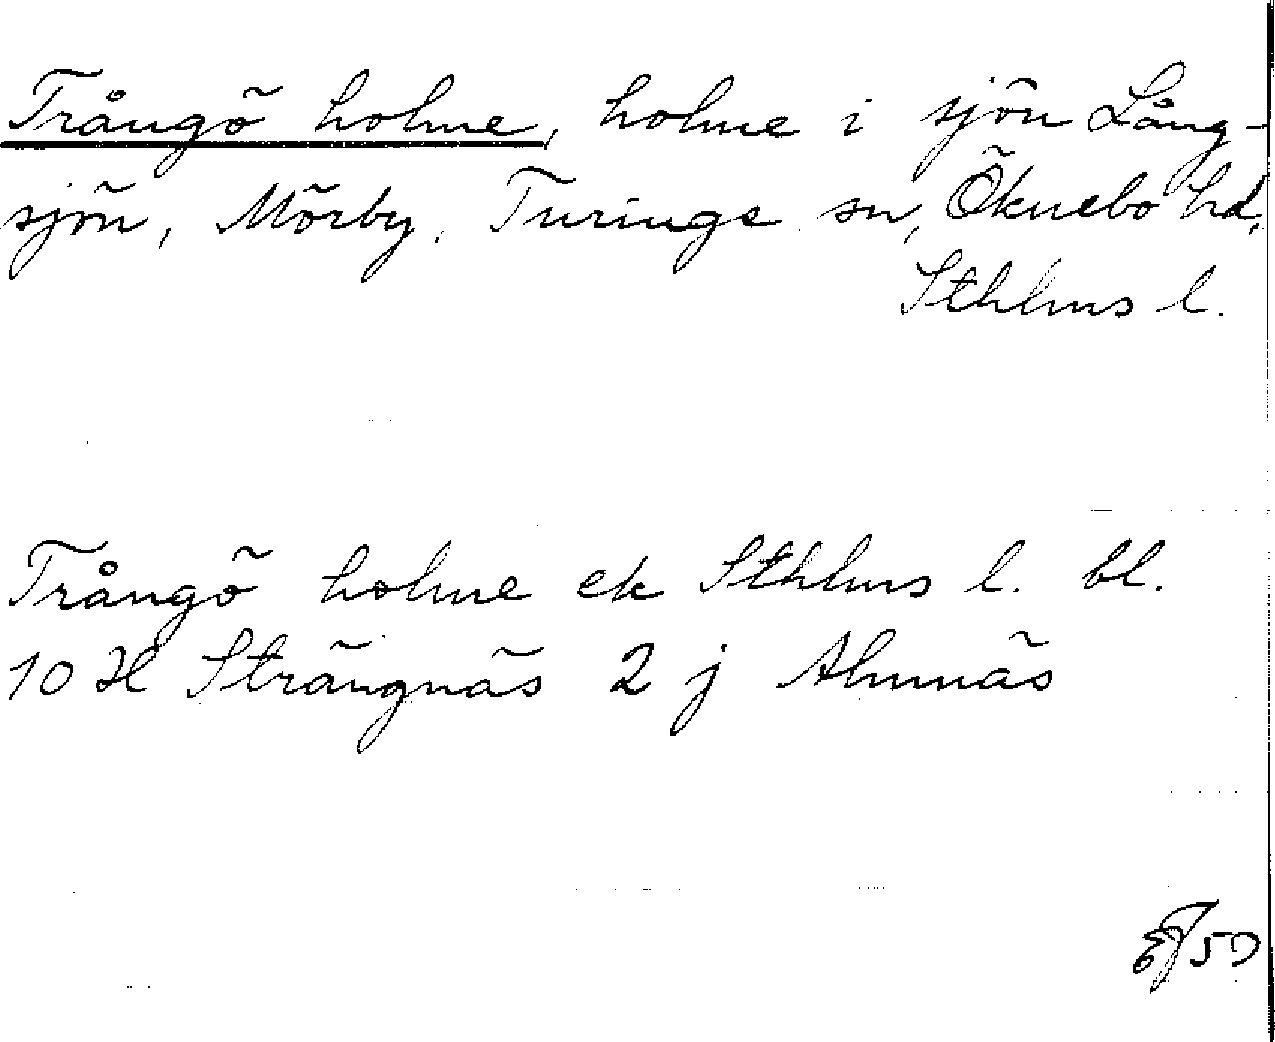 Trångö holme, holme i sjön Lång-
sjön, Mörby, Turinge sn, Öknebo hd,
Sthlms l.
Trångö holme ek Sthlms l. bl.
10 H Strängnäs 2 j Almnäs
50